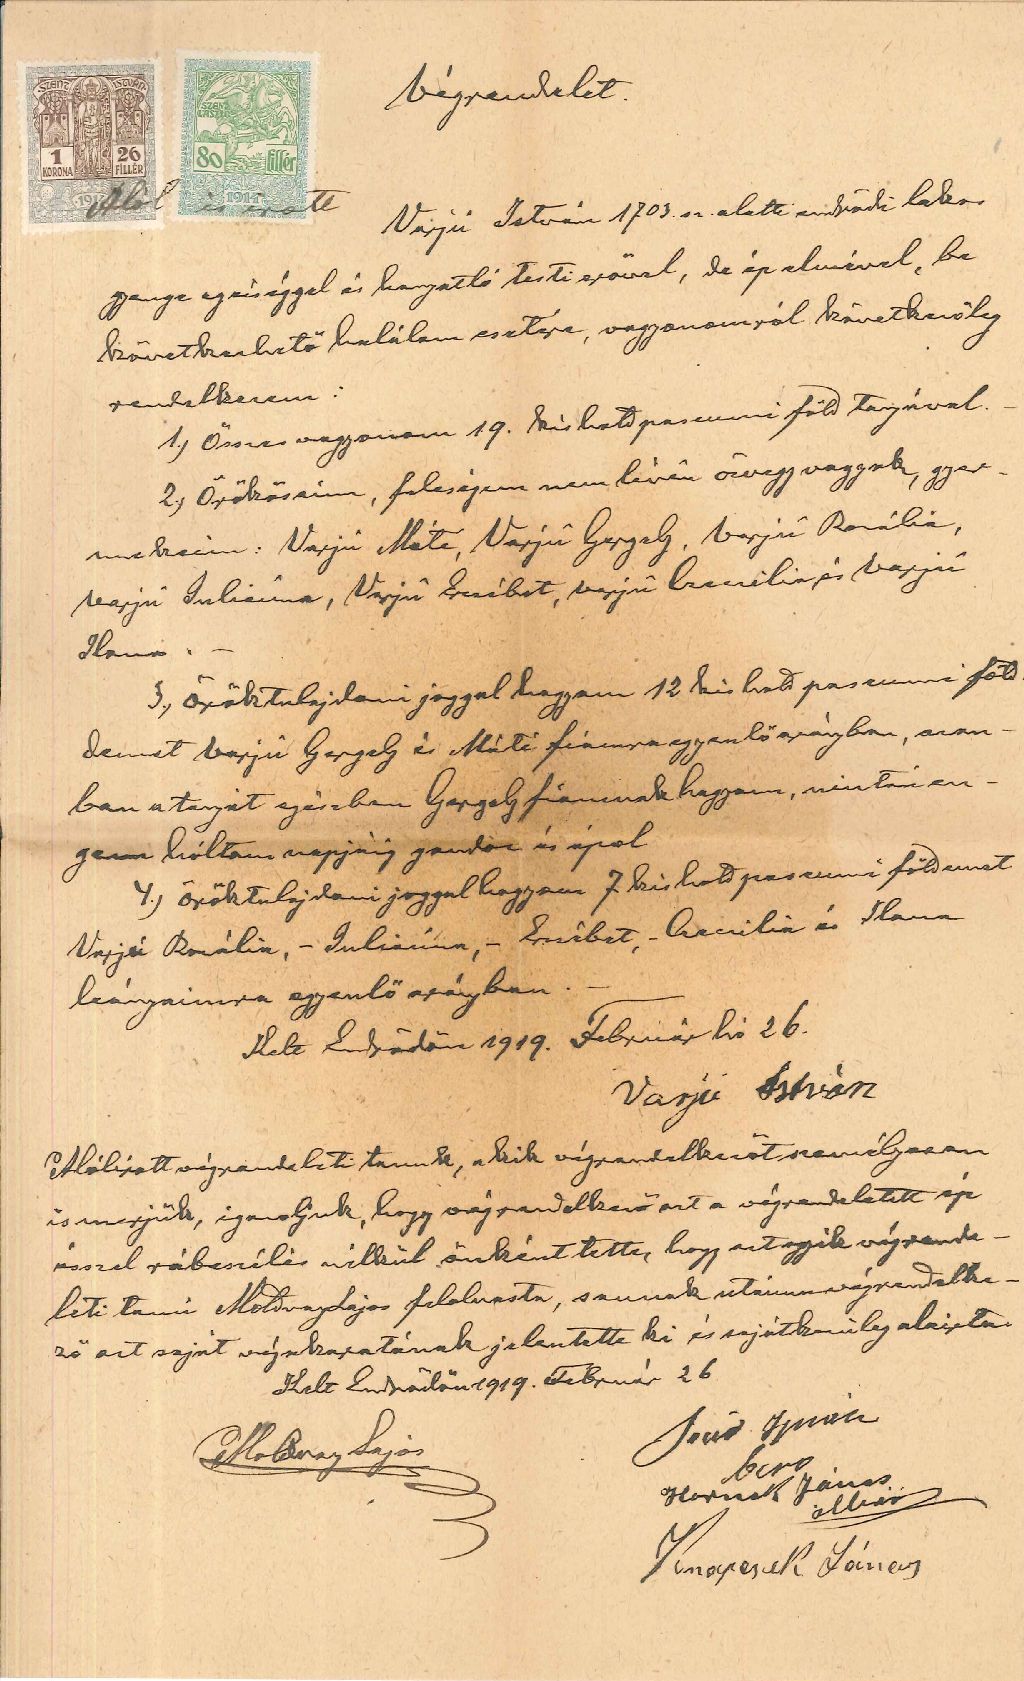 Végrendelet.
SZENT ISTVÁN
1 KORONA 26 FILLÉR
SZENT LÁSZLÓ
80 fillér
1914
Alólírott
Varjú István 1703. sz. alatti endrődi lakos
gyenge egésséggel és hanyatló testi erővel, de ép elmével, be
következhető halálom esetére, vagyonomról következőleg
rendelkezem:
1.) Összes vagyonom 19. kishold pascumi föld tanyával. –
2.) Örököseim, feleségem nem lévén özvegy vagyok, gyer-
mekeim: Varjú Máté, Varjú Gergely, Varjú Rozália,
Varjú Juliánna, Varjú Erzsébet, Varjú Cecilia és Varjú
Ilona. –
3.) Öröktulajdoni joggal hagyom 12 kishold pascumi föld-
demet Varjú Gergely és Máté fiamra egyenlő arányban, azon-
ban a tanyát egészben Gergely fiamnak hagyom, mintán en-
gem hóltom napjáig gondoz és ápol
4.) Öröktulajdoni joggal hagyom 7 kishold pascumi földemet
Varjú Rozália, – Juliánna, – Erzsébet, – Cecilia és Ilona
leányaimra egyenlő arányban. –
Kelt Endrődön 1919. Február hó 26.
Varjú István
Alólírott végrendeleti tanuk, a kik végrendelkezőt személyesen
ismerjük, igazoljuk, hogy végrendelkező ezt a végrendeletet ép
ésszel rábeszélés nélkül önként tette, hogy ezt egyik végrende-
leti tanu Moldvay Lajos felolvasta, s annak utánna végrendelke-
ző ezt saját végakaratának jelentette ki és sajátkezüleg aláirta.
Kelt Endrődön 1919. Február 26
Moldvay Lajos
Ignác
János
János